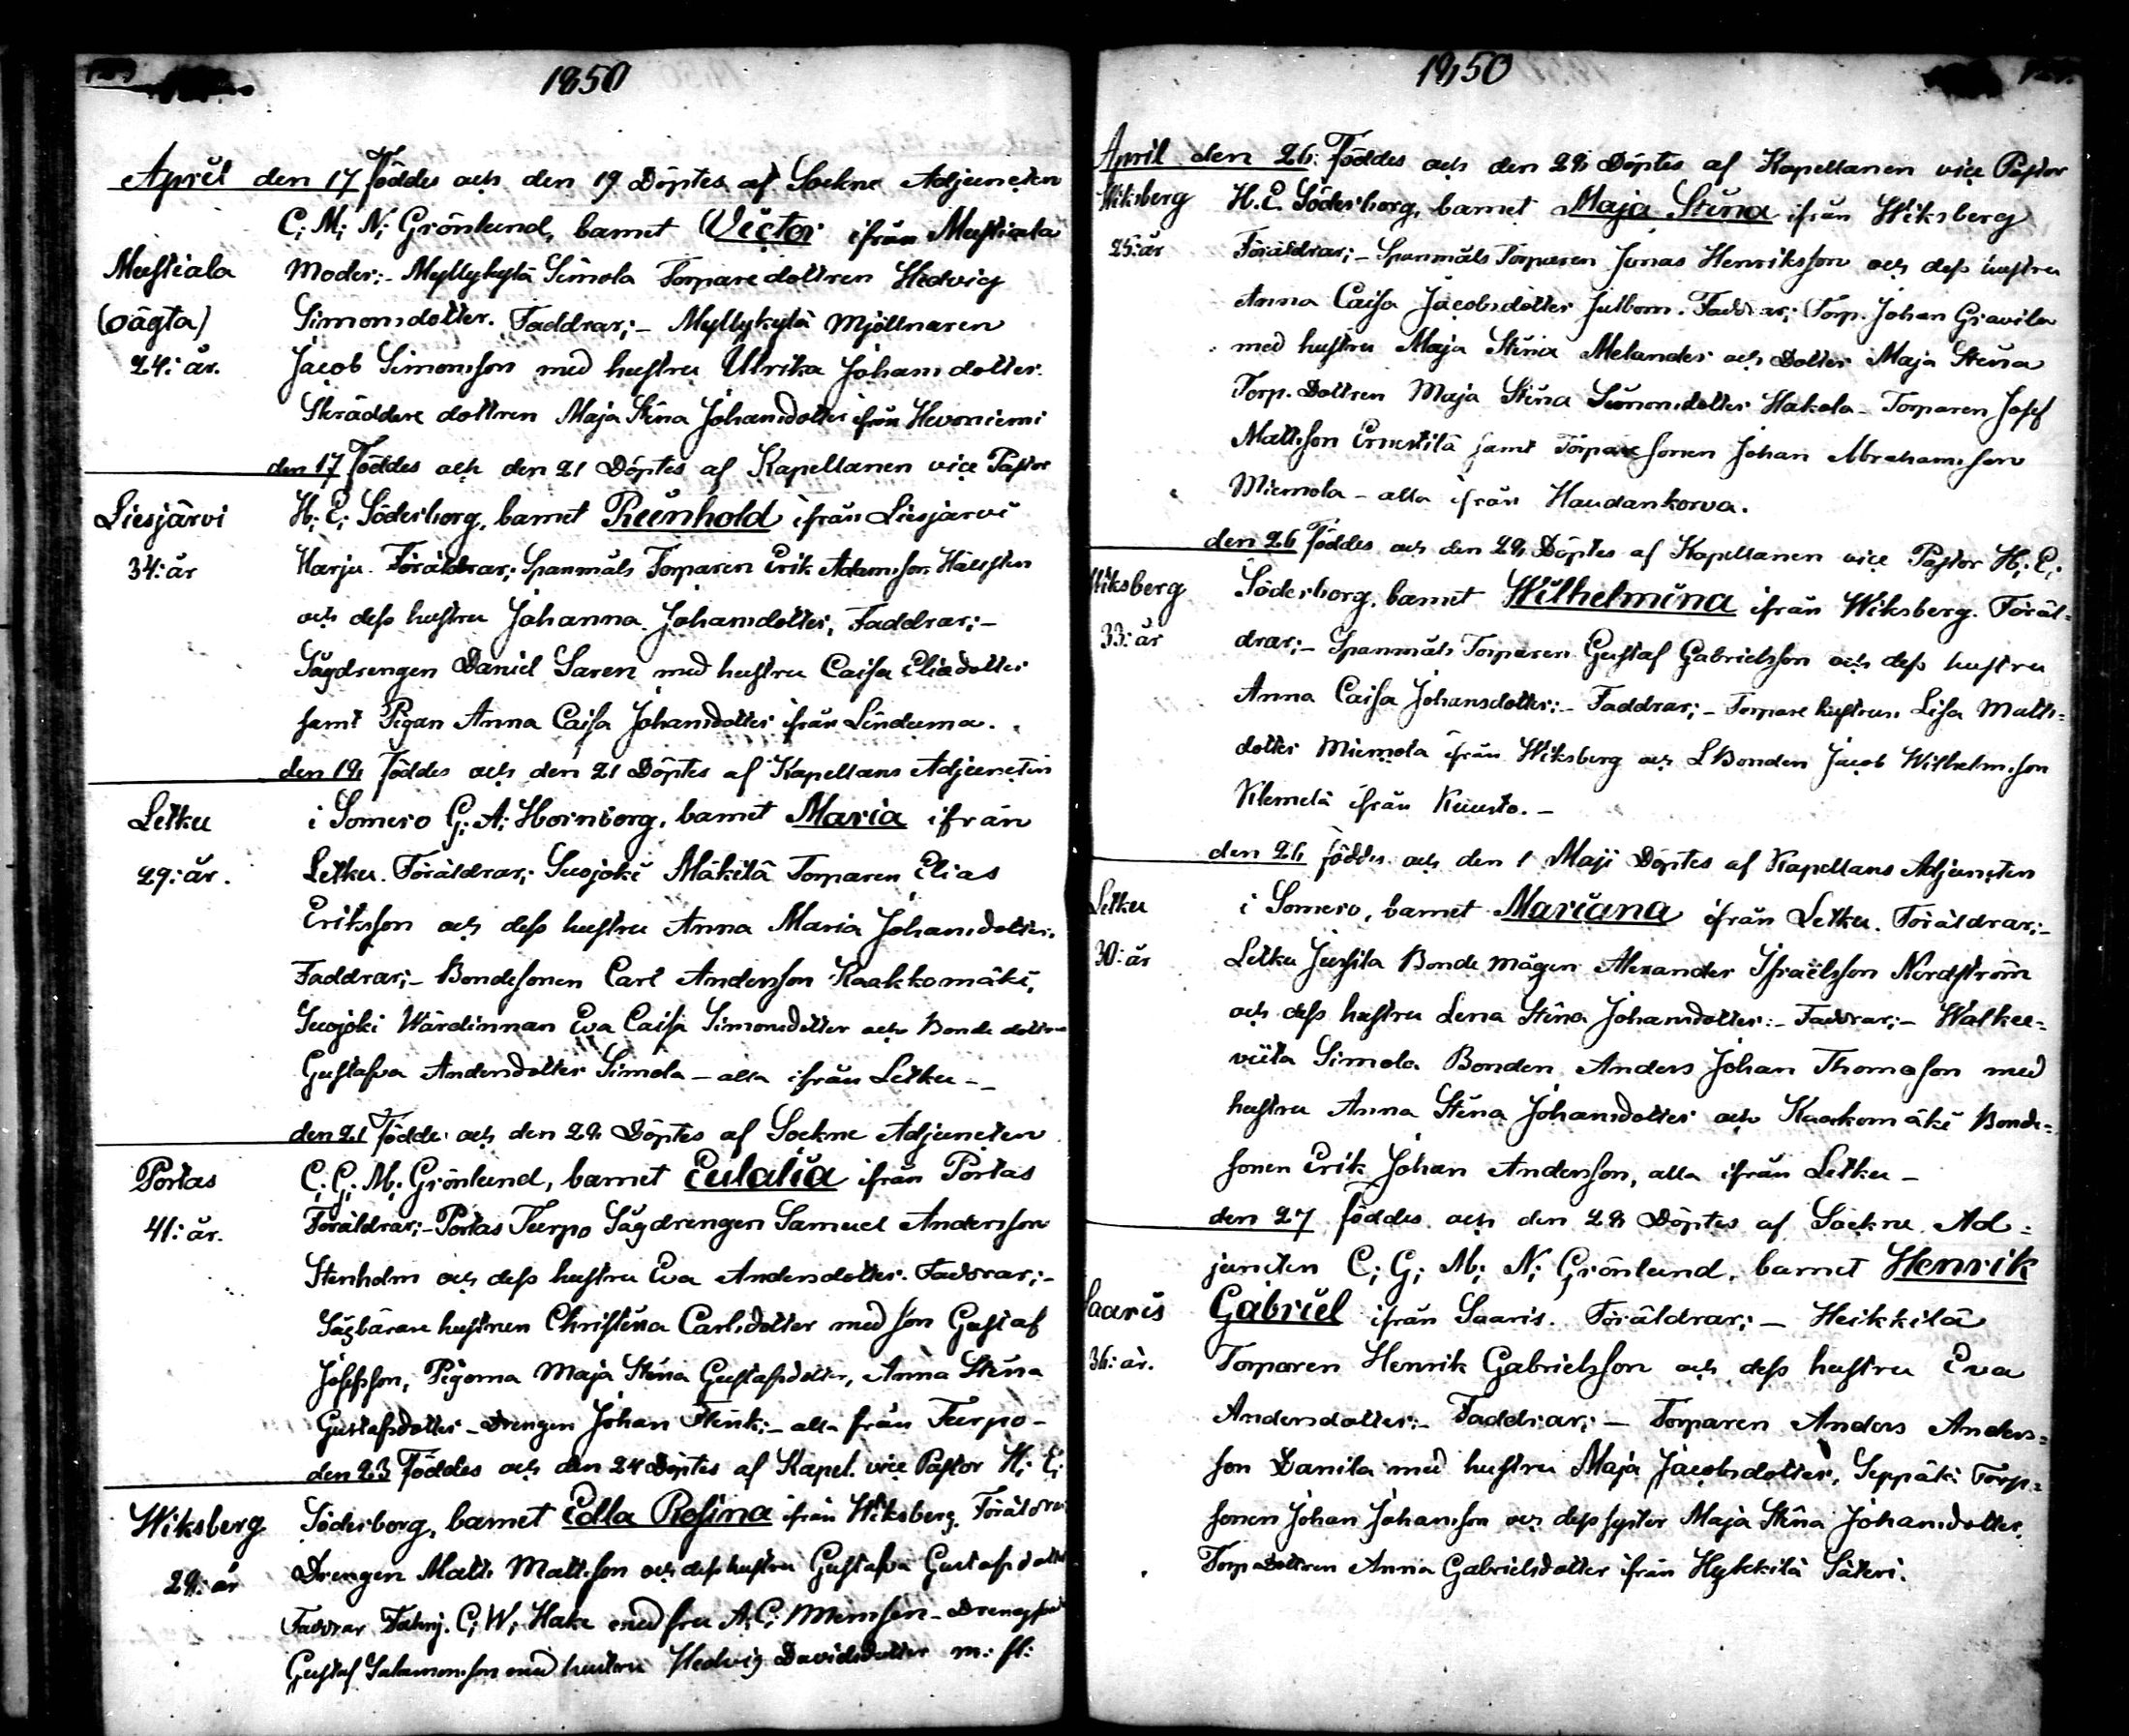 1850
April den 17 Föddes och den 19 Döptes af Sockne Adjuncten
C; M; N; Grönlund, barnet Victor ifrån Mustiala
Mustiala Moder;- Myllykylä Simola Torparedottren Hedvig
(oägta) Simonsdotter. Faddrar;- Myllykylä Mjöllnaren
24: år. Jacob Simonsson med hustru Ulrika Johansdotter.
Skräddare dottren Maja Stina Johansdotter ifrån Hevoniemi
den 17 Föddes och den 21 Döptes af Kapellanen vice Pastor
Liesjärvi H; E; Söderborg, barnet Reinhold ifrån Liesjärvi
34: år Harju. Föräldrar; Spanmåls Torparen Erik Adamsson Hällsten
och dess hustru Johanna Johansdotter, Faddrar;-
Sågdrengen Daniel Saren med hustru Caisa Eliædotter
samt Pigan Anna Caisa Johansdotter ifrån Linduma.
den 19 föddes och den 21 Döptes af Kapellans Adjuncten
Letku i Somero G; A; Hornborg, barnet Maria ifrån
29: år. Letku. Föräldrar; Suojoki Mäkilä Torparen Elias
Eriksson och dess hustru Anna Maria Johansdotter.
Faddrar;- Bondesonen Carl Andersson Kaakkomäki,
Suojoki Wärdinnan Eva Caisa Simonsdotter och Bonde dottren
Gustafva Andersdotter Simola - alla ifrån Letku -
den 21 Föddes och den 28 Döptes af Sockne Adjuncten
Portas C; G; M; Grönlund, barnet Eulalia ifrån Portas
41: år. Föräldrar;- Portas Turpo Sågdrengen Samuel Andersson
Stenholm och dess hustru Eva Andersdotter. Faddrar;-
Sågbärare hustrun Christina Carlsdotter med son Gustaf
Josefsson, Pigorna Maja Stina Gustafsdotter, Anna Stina
Gustafsdotter - Drengen Johan Flink;- alla från Turpo -
den 23 Föddes och den 24 Döptes af Kapel. vice Pastor H; E;
Wiksberg Söderborg, barnet Edla Rosina ifrån Wiksberg. Föräldrar
28: år Drengen Matts Mattsson och dess hustru Gustafva Gustafsdotter
Faddrar Fahnj. C; W; Hake med fru A; C; Memsen - Drengsonen
Gustaf Salamonsson med hustru Hedvig Davidsdotter m: fl:
1850
April den 26: Föddes och den 28 Döptes af Kapellanen vice Pastor
Wiksberg H. E. Söderborg, barnet Maja Stina ifrån Wiksberg
25: år Föräldrar;- Spanmåls Torparen Jonas Henriksson och dess hustru
Anna Caisa Jacobsdotter Julbom. Faddrar; Torp. Johan Gravila
med hustru Maja Stina Melander och Dotter Maja Stina
Torp. Dottren Maja Stina Simonsdotter Hakala - Torparen Josef
Mattsson Ernestilä samt Torparesonen Johan Abrahamsson
Miemola - alla ifrån Haudankorva.
den 26 Föddes och den 28 Döptes af Kapellanen vice Pastor H; E;
Wiksberg Söderborg, barnet Wilhelmina ifrån Wiksberg. Föräl-
33: år drar;- Spanmåls Torparen Gustaf Gabrielsson och dess hustru
Anna Caisa Johansdotter;- Faddrar;- Torpare hustrun Lisa Matts-
dotter Miemola ifrån Wiksberg och LBonden Jacob Wilhelmsson
Klemelä ifrån Kuusto. -
den 26 föddes och den 1 Maji Döptes af Kapellans Adjuncten
Letku i Somero, barnet Mariana ifrån Letku. Föräldrar;-
30: år Letku Jussila Bonde mågen Alexander Israëlsson Nordström
och dess hustru Lena Stina Johansdotter;- Faddrar;- Walkee-
viita Simola Bonden Anders Johan Thomasson med
hustru Anna Stina Johansdotter och Kaakomäki Bonde-
sonen Erik Johan Andersson, alla ifrån Letku -
den 27 föddes och den 28 Döptes af Sockne Ad-
juncten C; G; M; N; Grönlund, barnet Henrik
Saaris Gabriel ifrån Saaris. Föräldrar;- Heikkilä
36: år. Torparen Henrik Gabrielsson och dess hustru Eva
Andersdotter;- Faddrar;- Torparen Anders Anders-
son Danila med hustru Maja Jacobsdotter, Seppäki Torp-
sonen Johan Johansson och dess syster Maja Stina Johansdotter
Torpadottren Anna Gabrielsdotter ifrån Hykkilä Säteri.